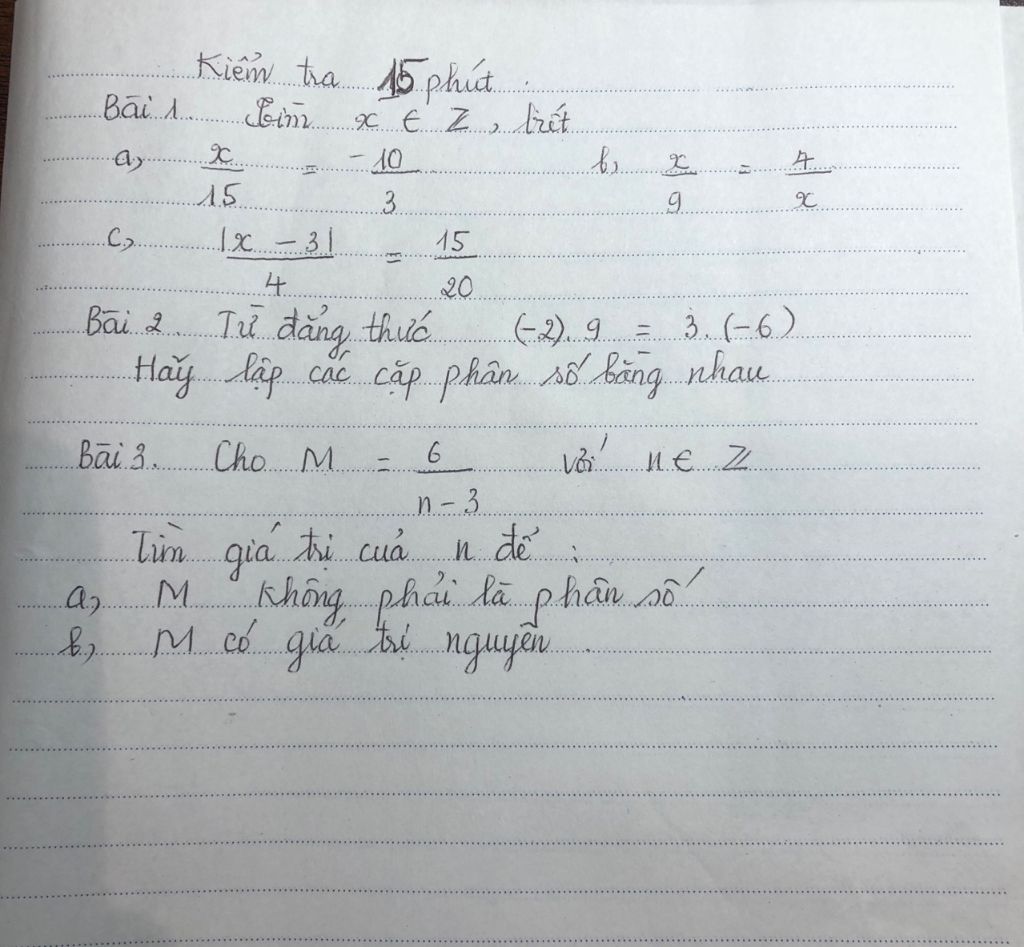 Kiểm tra 15 phút.
Bài 1. Tìm x ∈ Z, biết
a, x/15 = -10/3 b, x/9 = 4/x
c, |x - 3|/4 = 15/20
Bài 2. Từ đẳng thức (-2).9 = 3.(-6)
Hãy lập các cặp phân số bằng nhau
Bài 3. Cho M = 6/(n - 3) với n ∈ Z
Tìm giá trị của n để :
a, M không phải là phân số
b, M có giá trị nguyên.